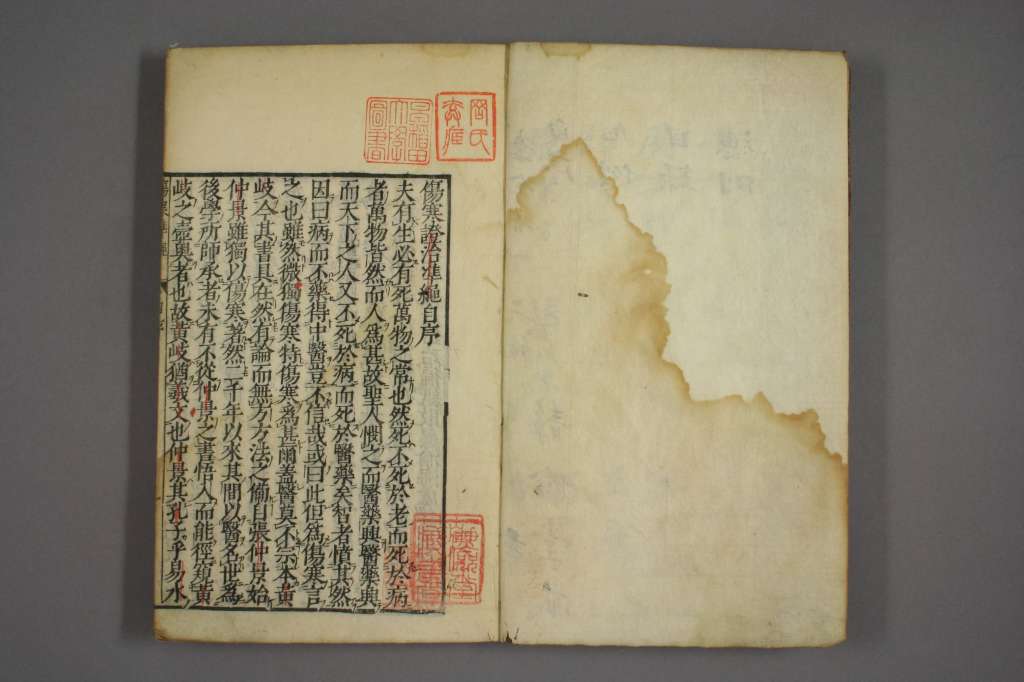 傷寒證治準繩自序
夫有生必有死萬物之常也然死不死於老而死於病
者萬物皆然而人爲甚故聖人憫之而醫藥興醫藥興
而天下之人又不死於病而死於醫藥矣智者憤其然
因曰病而不藥得中醫豈不信哉或曰此但爲傷寒言
之也雖然微獨傷寒特傷寒爲甚爾蓋醫莫不宗本黃
岐今其書具在然有論而無方方法之備自張仲景始
仲景雖獨以傷寒著然二千年以來其間以醫名世爲
後學所師承者未有不從仲景之書悟入而能徑窺黃
岐之壼奧者也故黃岐猶羲文也仲景其孔子乎易水